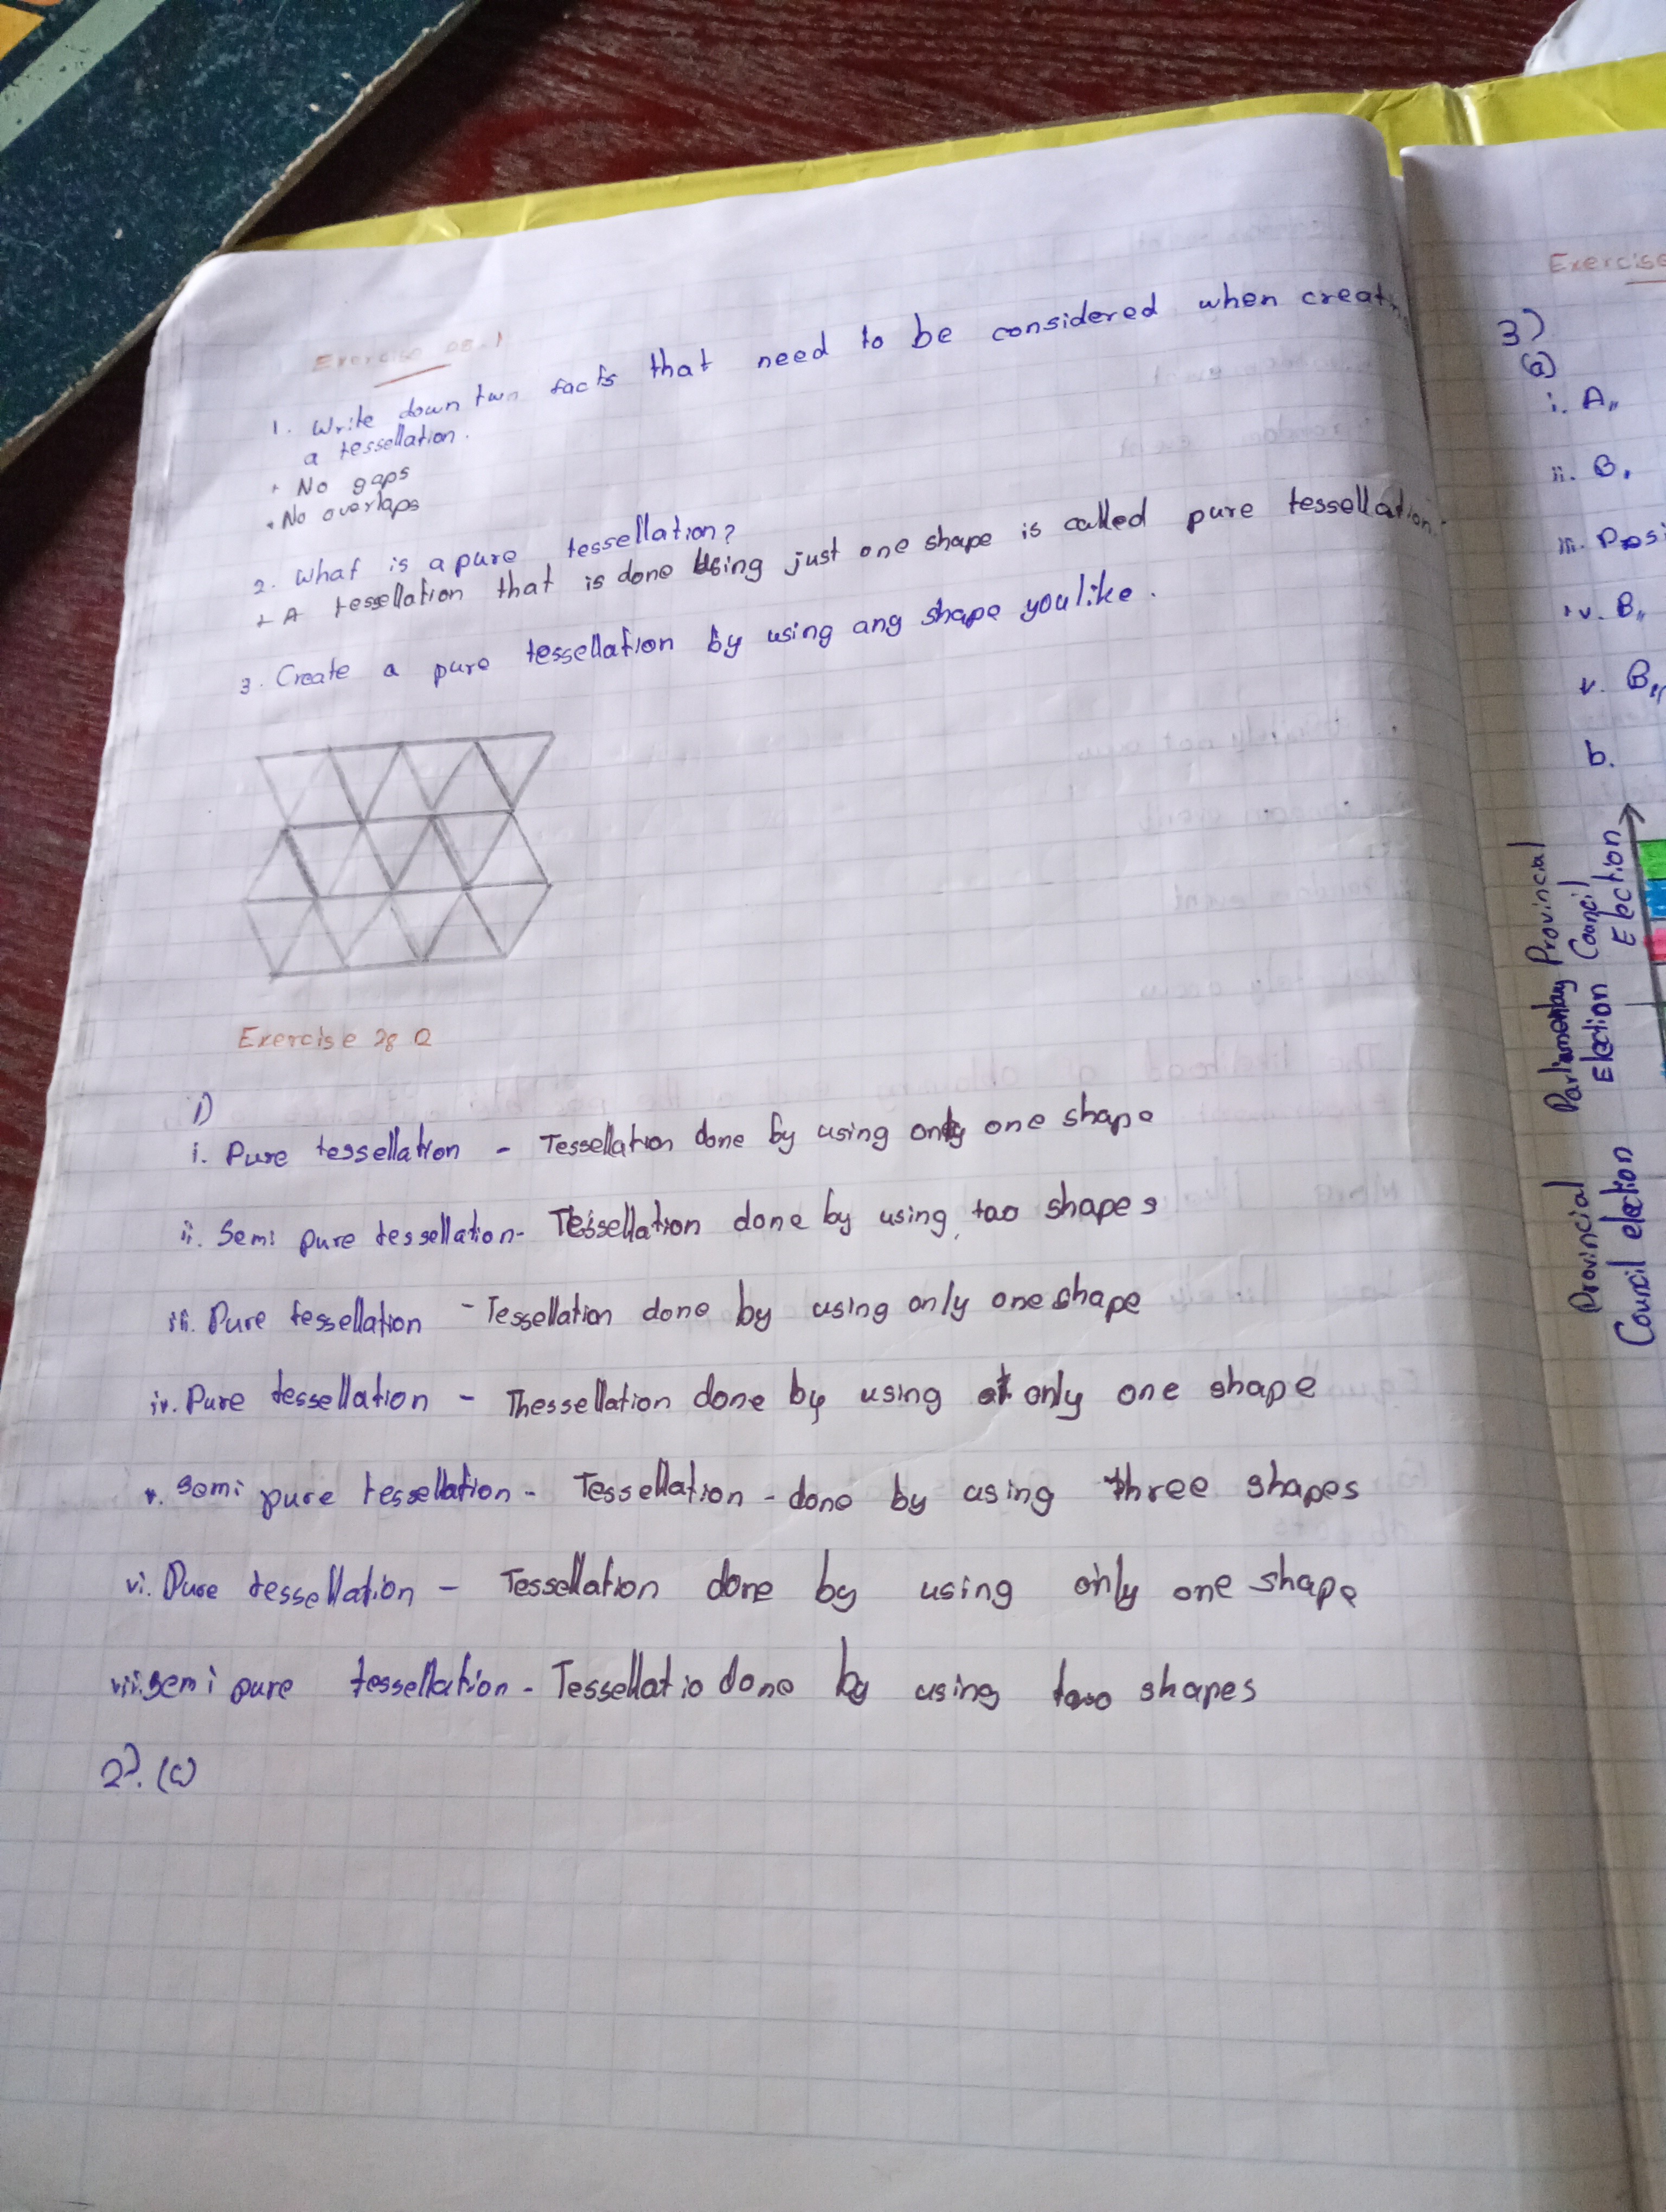 Exercise 28.1
1. Write down two facts that need to be considered when creat
a tessellation.
• No gaps
• No overlaps
2. What is a pure tessellation?
• A tessellation that is done Using just one shape is called pure tessellation
3. Create a pure tessellation by using any shape you like.
Exercise 28.2
1)
i. Pure tessellation - Tessellation done by using only one shape
ii. Semi pure tessellation - Tessellation done by using two shapes
iii. Pure tessellation - Tessellation done by using only one shape
iv. Pure tessellation - Thessellation done by using only one shape
v. Semi pure tessellation - Tessellation - done by using three shapes
vi. Pure tessellation - Tessellation done by using only one shape
vii. Semi pure tessellation - Tessellatio done by using two shapes
2). (c)
Exercise
3)
(a)
i. A,,
ii. B,
iii. Posi
iv. B,,
v. B,,
5.
Provincial
Council
Election
Parliamentary
Election
Provincial
Council election